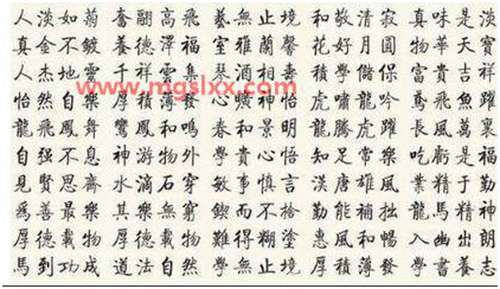 人淡如菊 奮翮高飛 藝無止境 和敬清寂 真味是淡
真金不鍍 養德澤福 室雅蘭馨 花好月圓 物華天寶
人杰地靈 千祥雲集 琴 相壽 學儲 富貴吉祥
www.mgslxx.com
怡然自樂 厚積薄發 心曠神怡 虎嘯龍吟 鳶飛魚躍
龍飛鳳舞 鸞鳳和鳴 春和景明 龍騰虎躍 長風萬里
自强不息 神游物外 貴心悟 知足常樂 吃虧是福
見賢思齋 水滴石穿 敏事慎言 漢唐雄風 業精于勤
為善最樂 其樂無窮 鍥而不捨 勤能補拙 龍馬精神
厚德載物 厚德載物 難得糊塗 惠風和暢 入幽出朗
馬到功成 道法自然 學無止境 厚積薄發 學書養志